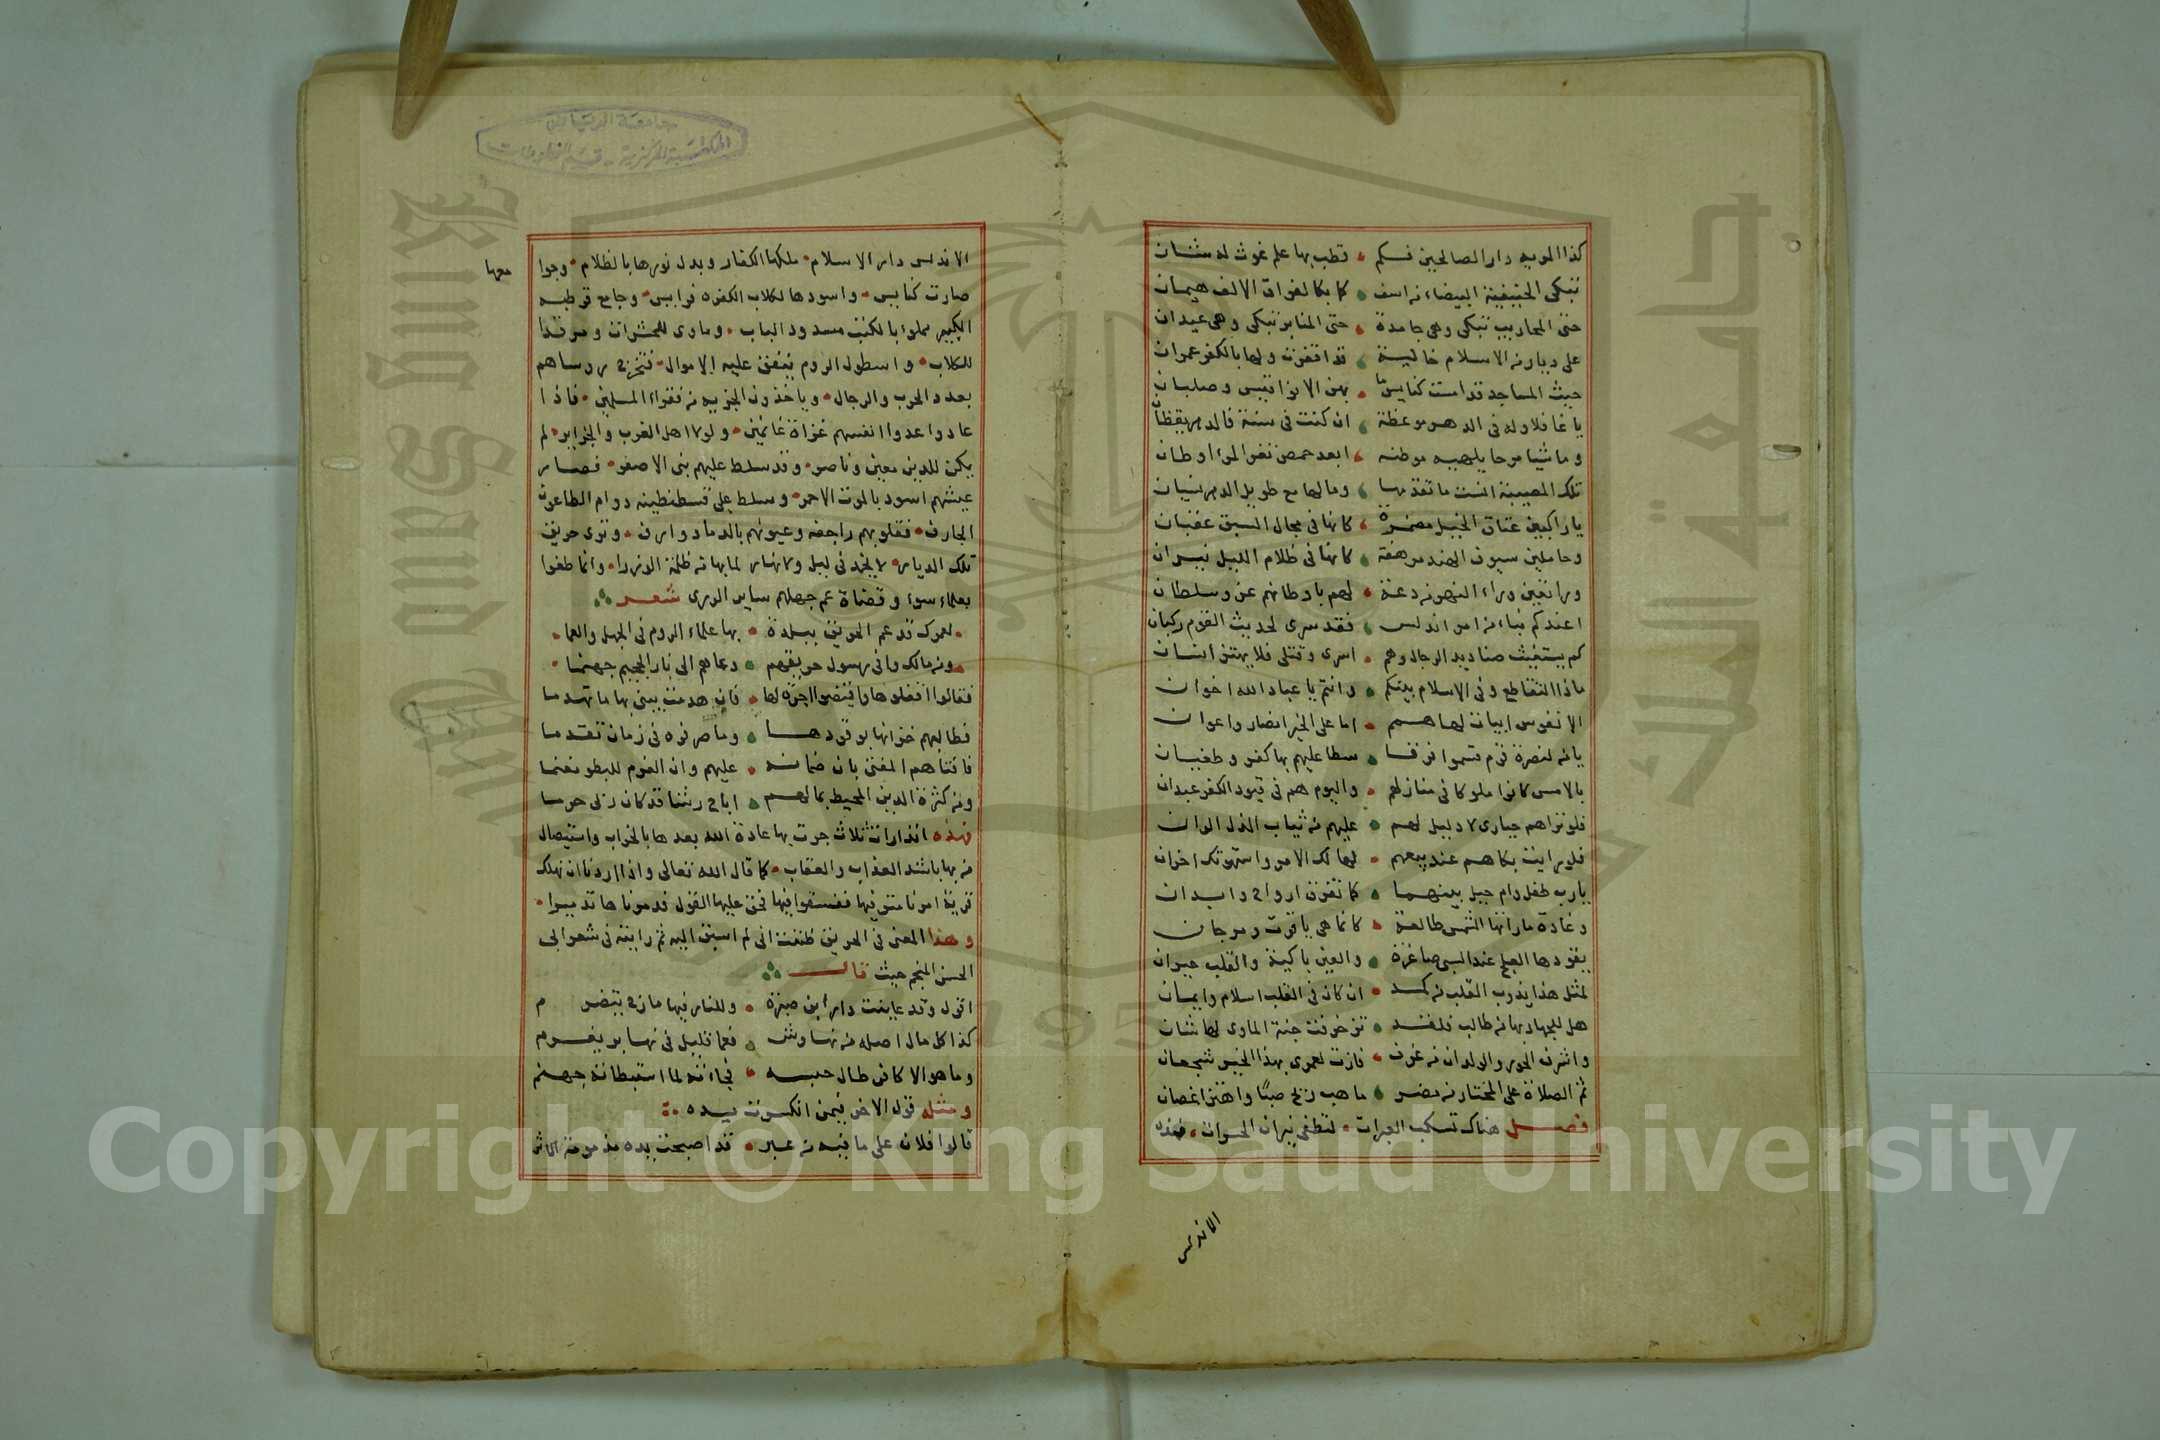 كذا المريه دار الصالحين فكم • قطب بها علم غوث له شان
تبكى الحنيفية البيضاء من اسف • كما بكا لفراق الالف هيمان
حتى المحاريب تبكى وهى جامدة • حتى المنابر تبكى وهى عيدان
على ديار من الاسلام خالية • قد اقفرت ولها بالكفر عمران
حيث المساجد قد امست كنايس ما • بهن الا نواقيس وصلبان
يا غافلا وله فى الدهر موعظة • ان كنت فى سنة فالدهر يقظان
وماشيا مرحا يلهيه موطنه • ابعد حمص تغر المرء اوطان
تلك المصيبة انست ما تقدمها • وما لها مع طويل الدهر نسيان
يا راكبين عتاق الخيل مضمرة • كانها فى مجال السبق عقبان
وحاملين سيوف الهند مرهفة • كانها فى ظلام الليل نيران
وراتعين وراء النهر من دعة • لهم باوطانهم عز وسلطان
اعندكم نباء من امر اندلس • فقد سرى لحديث القوم ركبان
كم يستغيث صناديد الرجال وهم • اسرى وقتلى فلا يهتز انسان
ماذا التقاطع فى الاسلام بينكم • وانتم يا عباد الله اخوان
الا نفوس ابيات لها همم • اما على الخير انصار واعوان
يا من لنصرة قوم قسموا فرقا • سطا عليهم بها كفر وطغيان
بالامس كانوا ملوكا فى منازلهم • واليوم هم فى قيود الكفر عبدان
فلو تراهم حيارى لا دليل لهم • عليهم من ثياب الذل الوان
فلو رايت بكاهم عند بيعهم • لهالك الامر واستهوتك احزان
يا رب طفل وام حيل بينهما • كما تفرق ارواح وابدان
وغادة ما راتها الشمس طالعة • كانما هى ياقوت ومرجان
يقودها العلج عند السبى صاغرة • والعين باكية والقلب حيران
لمثل هذا يذوب القلب من كمد • ان كان فى القلب اسلام وايمان
هل للجهاد بها من طالب فلقد • تزخرفت جنة الماوى لها شان
واشرف الحور والولدان من غرف • فازت لعمرى بهذا الخير شجعان
ثم الصلاة على المختار من مضر • ما هب ريح صبا واهتز اغصان
فصل هناك تسكب العبرات • لتطفى نيران الحسرات • فهذه
الاندلس
الاندلس دار الاسلام • ملكها الكفار وبدل نورها بالظلام • وجوا
معها
صارت كنايس • واسودها لكلاب الكفره فرايس • وجامع قرطبه
الكبير مملوء بالكتب مسدود الباب • وماوى للحشرات ومرقدا
للكلاب • واسطول الروم ينفق عليه الاموال • فتخرج روساهم
بعدد الحرب والرجال • وياخذون الجزيه من فقراء المسلمين • فاذا
عادوا عدوا انفسهم غزاة غانمين • ولولا اهل الغرب والجزاير • لم
يكن للدين معين وناصر • وقد سلط عليهم بنى الاصفر • فصار
عيشهم اسود بالموت الاحمر • وسلط على قسطنطينه دوام الطاعون
الجارف • فقلوبهم راجفه وعيونهم بالدما دوارف • وترى حريق
تلك الديار • لا يخمد فى ليل ولا نهار لما بها من ظلمة الوزرا • وانما طغوا
بعلماء سوء وقضاة عم جهلهم ساير الورى شعر
• لعمرك قد عم الحريق ببلدة • بها علماء الروم فى الجهل والعما •
• ومن مالك وافى رسول حريقهم • دعاهم الى نار الجحيم جهنما •
فقالوا اقفلوها واقبضوا اجرة لها • فان هدمت يبنى بها ما تهدما
فطالعهم خزانها بوقودها • وما صرفوه فى زمان تقدما
فافتاهم المفتى بان ضمانه • عليهم وان الغرم للبطو مغنما
ومن كثرة الدين المحيط بمالهم • اباح رشا قد كان ربى حرما
فهذه انذارات ثلاث جرت بها عادة الله بعدها بالخراب واستيصال
من بها باشد العذاب والعقاب • كما قال الله تعالى واذا اردنا ان نهلك
قرية امرنا مترفيها ففسقوا فيها فحق عليها القول فدمرناها تدميرا •
وهذا المعنى فى الحريق ظننت انى لم اسبق اليه ثم رايته فى شعر ابى
الحسن المنجم حيث قال
اقول وقد عاينت دار ابن صورة • وللنار فيها مارج يتضرم
كذا كل مال اصله من نهاوش • فعما قليل فى نهابر يغرم
وما هو الا كافر طال حبسه • فجاءته لما استبطاته جهنم
ومثله قول الاخر فيمن انكسرت يده
قالوا فلان على ما فيه من عبر • قد اصبحت يده مذمومة الاثر
جامعة الرياض
المكتبة المركزية - قسم المخطوطات
King Saud University
جامعة الملك سعود
1957
Copyright © King Saud University